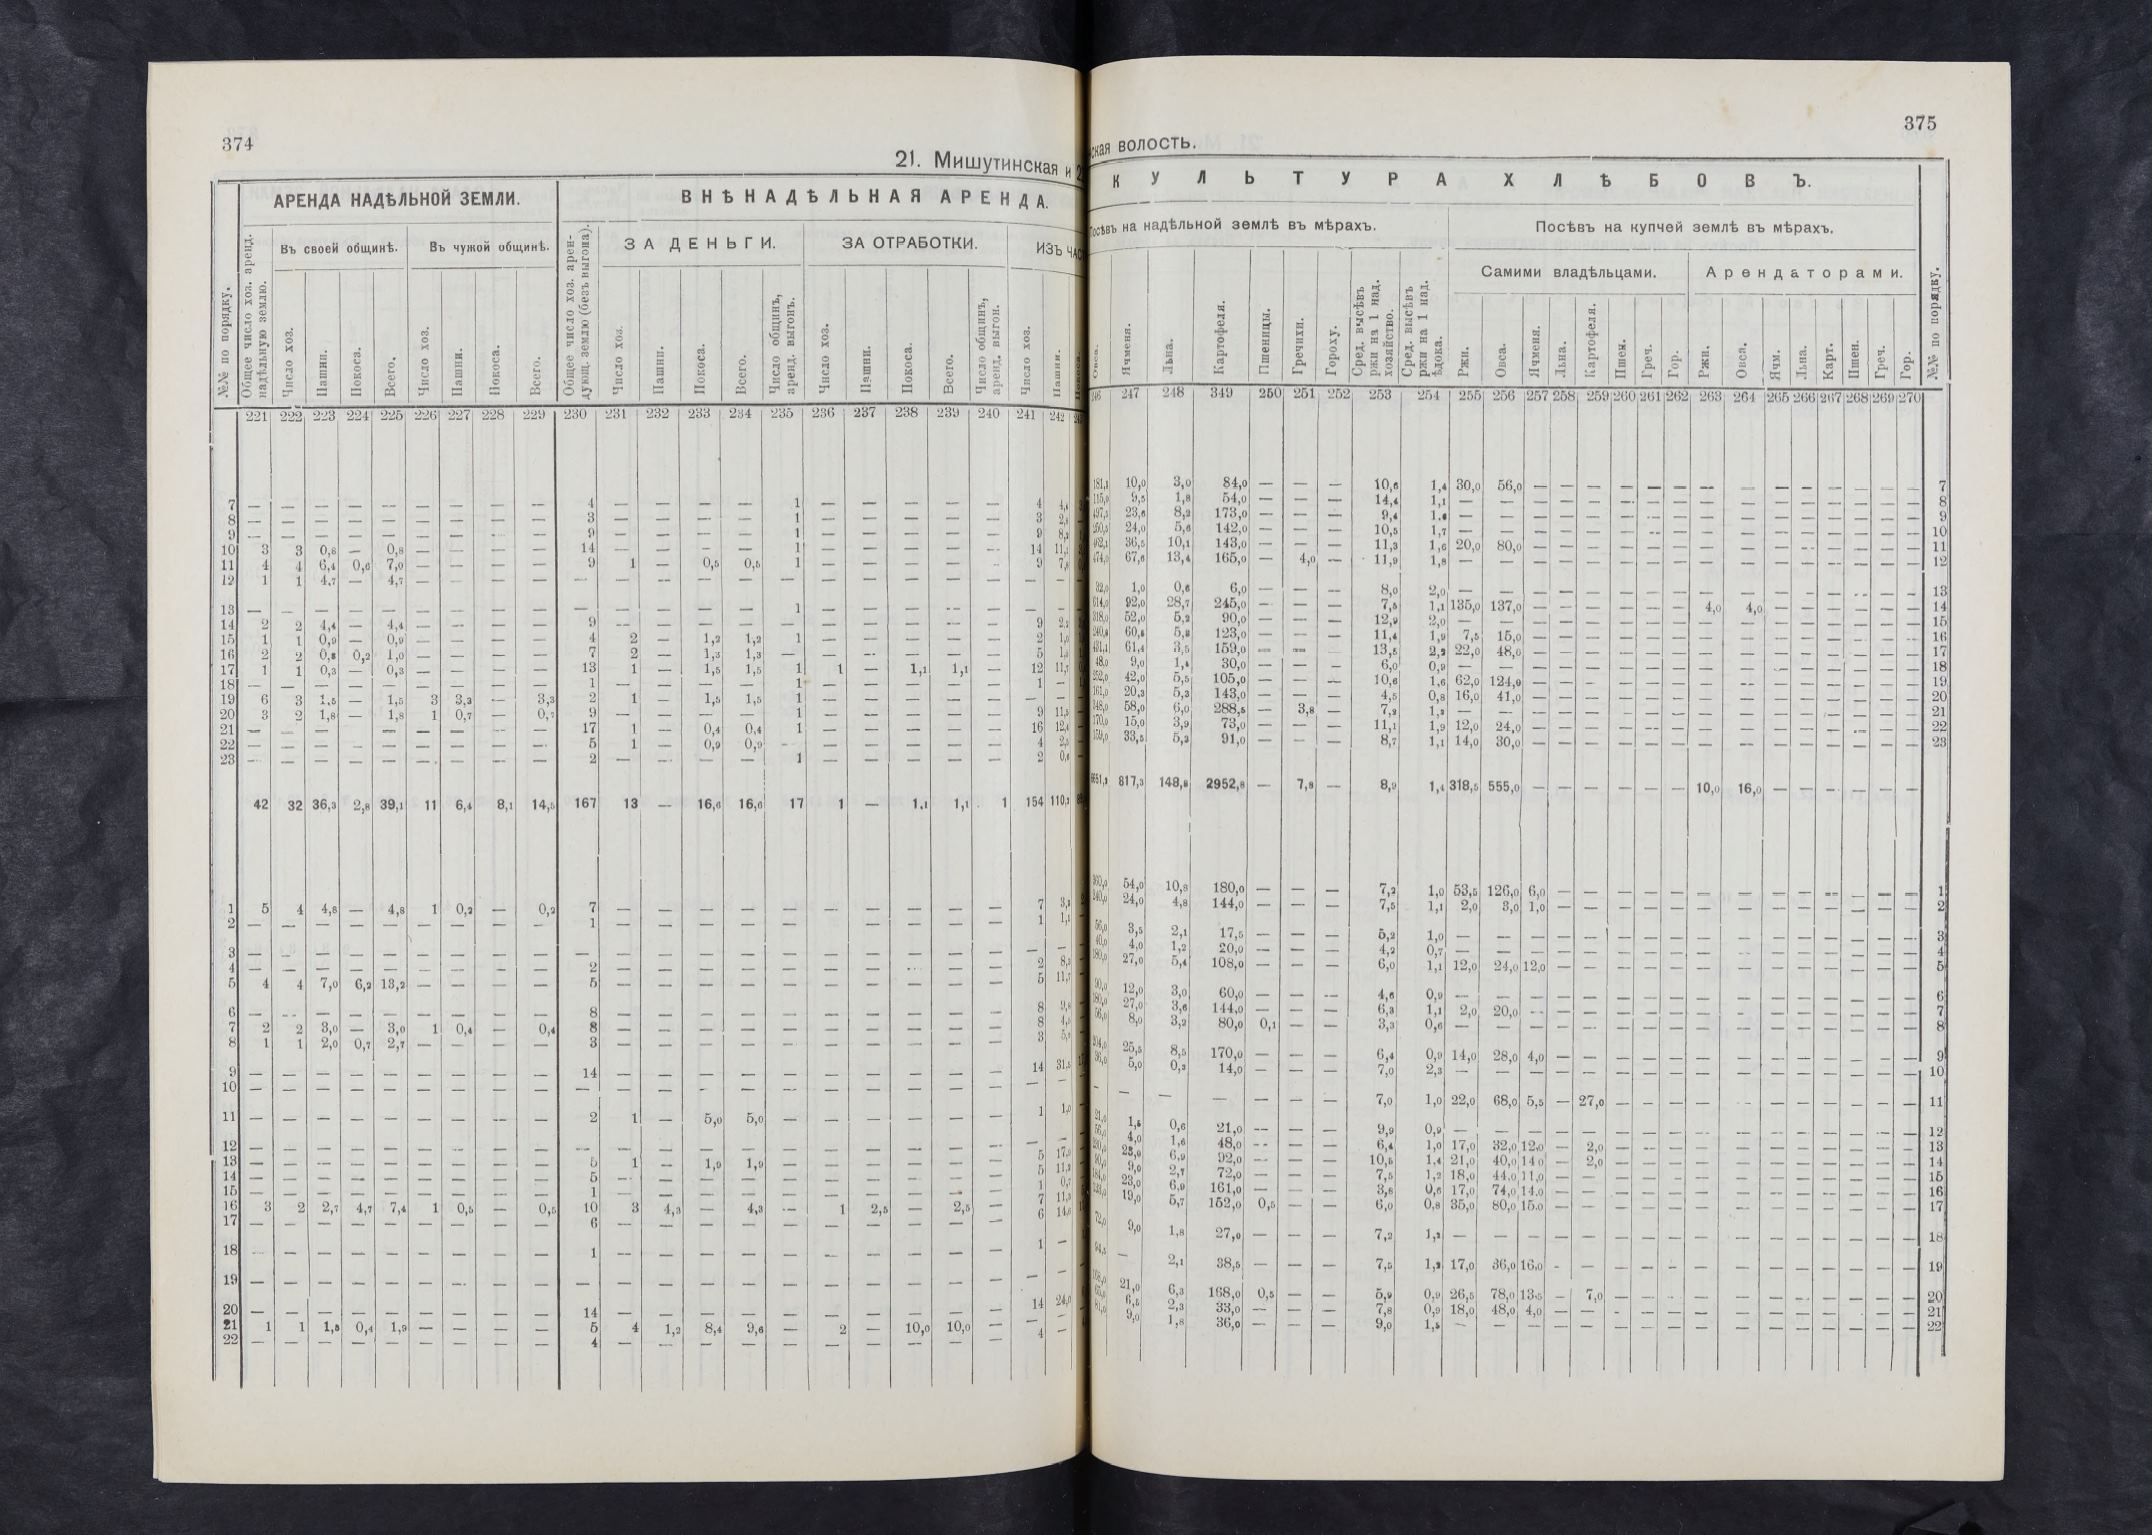 374
21. Мишутинская и
АРЕНДА НАДѢЛЬНОЙ ЗЕМЛИ.
ВНѢНАДѢЛЬНАЯ АРЕНДА.
Въ своей общинѣ. Въ чужой общинѣ.
ЗА ДЕНЬГИ. ЗА ОТРАБОТКИ.
№№ по порядку.
Общее число хоз. аренд. надѣльную землю.
Число хоз. Пашни. Покоса. Всего. Число хоз. Пашни. Покоса. Всего.
Общее число хоз. арендующ. землю (безъ выгона).
Число хоз. Пашни. Покоса. Всего. Число общинъ, аренд. выгонъ.
Число хоз. Пашни. Покоса. Всего. Число общинъ, аренд. выгон. Число хоз. Пашни.
221 222 223 224 225 226 227 228 229 230 231 232 233 234 235 236 237 238 239 240 241 242
7 — — — — — — — — — 4 — — — — 1 — — — — — 4
8 — — — — — — — — — 3 — — — — 1 — — — — — 3
9 — — — — — — — — — 9 — — — — 1 — — — — — 9
10 3 3 0,8 — 0,8 — — — — 14 — — — — 1 — — — — — 14
11 4 4 6,4 0,6 7,0 — — — — 9 1 — 0,5 0,5 1 — — — — — 9
12 1 1 4,7 — 4,7 — — — — — — — — — — — — — — — — —
13 — — — — — — — — — — — — — — 1 — — — — — — —
14 2 2 4,4 — 4,4 — — — — 9 — — — — — — — — — — 9
15 1 1 0,9 — 0,9 — — — — 4 2 — 1,2 1,2 1 — — — — — 2
16 2 2 0,8 0,2 1,0 — — — — 7 2 — 1,3 1,3 — — — — — — 5
17 1 1 0,3 — 0,3 — — — — 13 1 — 1,5 1,5 1 1 — 1,1 1,1 — 12 11,7
18 — — — — — — — — — 1 — — — — 1 — — — — — 1 —
19 6 3 1,5 — 1,5 3 3,3 — 3,3 2 1 — 1,5 1,5 1 — — — — — — —
20 3 2 1,8 — 1,8 1 0,7 — 0,7 9 — — — — 1 — — — — — 9 11,5
21 — — — — — — — — — 17 1 — 0,4 0,4 1 — — — — — 16 12,4
22 — — — — — — — — — 5 1 — 0,9 0,9 — — — — — — 4
23 — — — — — — — — — 2 — — — — 1 — — — — — 2
42 32 36,3 2,8 39,1 11 6,4 8,1 14,5 167 13 — 16,6 16,6 17 1 — 1,1 1,1 1 154 110,3
1 5 4 4,8 — 4,8 1 0,2 — 0,2 7 — — — — — — — — — — 7
2 — — — — — — — — — 1 — — — — — — — — — — 1
3 — — — — — — — — — — — — — — — — — — — — — —
4 — — — — — — — — — 2 — — — — — — — — — — 2
5 4 4 7,0 6,2 13,2 — — — — 5 — — — — — — — — — — 5 11,7
6 — — — — — — — — — 8 — — — — — — — — — — 8
7 2 2 3,0 — 3,0 1 0,4 — 0,4 8 — — — — — — — — — — 8
8 1 1 2,0 0,7 2,7 — — — — 3 — — — — — — — — — — 3
9 — — — — — — — — — 14 — — — — — — — — — — 14 31,5
10 — — — — — — — — — — — — — — — — — — — — — —
11 — — — — — — — — — 2 1 — 5,0 5,0 — — — — — — 1 1,0
12 — — — — — — — — — — — — — — — — — — — — — —
13 — — — — — — — — — 5 1 — 1,9 1,9 — — — — — — 5
14 — — — — — — — — — 5 — — — — — — — — — — 5
15 — — — — — — — — — 1 — — — — — — — — — — 1
16 3 2 2,7 4,7 7,4 1 0,5 — 0,5 10 3 4,3 — 4,3 — 1 2,5 — 2,5 — 7
17 — — — — — — — — — 6 — — — — — — — — — — 6
18 — — — — — — — — — 1 — — — — — — — — — — 1 —
19 — — — — — — — — — — — — — — — — — — — — — —
20 — — — — — — — — — 14 — — — — — — — — — — 14 24,0
21 1 1 1,5 0,4 1,9 — — — — 5 4 1,2 8,4 9,6 — 2 — 10,0 10,0 — 4 —
22 — — — — — — — — — 4 — — — — — — — — — —
375
ская волость.
КУЛЬТУРА ХЛѢБОВЪ.
Посѣвъ на надѣльной землѣ въ мѣрахъ.
Посѣвъ на купчей землѣ въ мѣрахъ.
Самими владѣльцами. Арендаторами.
Овса. Ячменя. Льна. Картофеля. Пшеницы. Гречихи. Гороху.
Сред. высѣвъ ржи на 1 над. хозяйство.
Сред. высѣвъ ржи на 1 над. ѣдока.
Ржи. Овса. Ячменя. Льна. Картофеля. Пшен. Греч. Гор. Ржи. Овса. Ячм. Льна. Карт. Пшен. Греч. Гор.
№№ по порядку.
246 247 248 349 250 251 252 253 254 255 256 257 258 259 260 261 262 263 264 265 266 267 268 269 270
10,0 3,0 84,0 — — — 10,6 1,4 30,0 56,0 — — — — — — — — — — — — — — 7
9,5 1,8 54,0 — — — 14,4 1,1 — — — — — — — — — — — — — — — — 8
23,6 8,2 173,0 — — — 9,4 — — — — — — — — — — — — — — — — 9
24,0 5,6 142,0 — — — 10,5 1,7 — — — — — — — — — — — — — — — — 10
36,5 10,1 143,0 — — — 11,3 1,6 20,0 80,0 — — — — — — — — — — — — — — 11
67,6 13,4 165,0 — 4,0 — 11,9 1,8 — — — — — — — — — — — — — — — — 12
1,0 0,6 6,0 — — — 8,0 2,0 — — — — — — — — — — — — — — — — 13
92,0 28,7 245,0 — — — 7,5 1,1 135,0 137,0 — — — — — — 4,0 4,0 — — — — — — 14
52,0 5,2 90,0 — — — 12,9 2,0 — — — — — — — — — — — — — — — — 15
60,8 5,8 123,0 — — — 11,4 1,9 7,5 15,0 — — — — — — — — — — — — — — 16
61,4 3,5 159,0 — — — 13,5 2,2 22,0 48,0 — — — — — — — — — — — — — — 17
9,0 1,4 30,0 — — — 6,0 0,9 — — — — — — — — — — — — — — — — 18
42,0 5,5 105,0 — — — 10,6 1,6 62,0 124,0 — — — — — — — — — — — — — — 19
20,3 5,3 143,0 — — — 4,5 0,8 16,0 41,0 — — — — — — — — — — — — — — 20
58,0 6,0 288,5 — 3,8 — 7,2 1,2 — — — — — — — — — — — — — — — — 21
15,0 3,9 73,0 — — — 11,1 1,9 12,0 24,0 — — — — — — — — — — — — — — 22
33,5 5,2 91,0 — — — 8,7 1,1 14,0 30,0 — — — — — — — — — — — — — — 23
817,3 148,8 2952,8 — 7,8 — 8,9 1,4 318,5 555,0 — — — — — — 10,0 16,0 — — — — — —
54,0 10,8 180,0 — — — 7,2 1,0 53,5 126,0 6,0 — — — — — — — — — — — — — 1
24,0 4,8 144,0 — — — 7,5 1,1 2,0 3,0 1,0 — — — — — — — — — — — — — 2
3,5 2,1 17,5 — — — 5,2 1,0 — — — — — — — — — — — — — — — — 3
4,0 1,2 20,0 — — — 4,2 0,7 — — — — — — — — — — — — — — — — 4
27,0 5,4 108,0 — — — 6,0 1,1 12,0 24,0 12,0 — — — — — — — — — — — — — 5
12,0 3,0 60,0 — — — 4,6 0,9 — — — — — — — — — — — — — — — — 6
27,0 3,6 144,0 — — — 6,3 1,1 2,0 20,0 — — — — — — — — — — — — — — 7
8,0 3,2 80,0 0,1 — — 3,3 0,6 — — — — — — — — — — — — — — — — 8
25,5 8,5 170,0 — — — 6,4 0,9 14,0 28,0 4,0 — — — — — — — — — — — — — 9
5,0 0,3 14,0 — — — 7,0 2,3 — — — — — — — — — — — — — — — — 10
— — — — — — — 7,0 1,0 22,0 68,0 5,5 — 27,0 — — — — — — — — — — — 11
1,5 0,6 21,0 — — — 9,9 0,9 — — — — — — — — — — — — — — — — 12
4,0 1,6 48,0 — — — 6,4 1,0 17,0 32,0 12,0 — 2,0 — — — — — — — — — — — 13
6,9 92,0 — — — 10,5 1,4 21,0 40,0 14,0 — 2,0 — — — — — — — — — — — 14
9,0 2,7 72,0 — — — 7,5 1,2 18,0 44,0 11,0 — — — — — — — — — — — — — 15
23,0 6,9 161,0 — — — 3,8 0,6 17,0 74,0 14,0 — — — — — — — — — — — — — 16
19,0 5,7 152,0 0,5 — — 6,0 0,8 35,0 80,0 15,0 — — — — — — — — — — — — — 17
9,0 1,8 27,0 — — — 7,2 1,2 — — — — — — — — — — — — — — — — 18
— 2,1 38,5 — — — 7,5 1,2 17,0 36,0 16,0 — — — — — — — — — — — — — 19
21,0 6,3 168,0 0,5 — — 5,9 0,9 26,5 78,0 13,5 — 7,0 — — — — — — — — — — — 20
6,5 2,3 33,0 — — — 7,8 0,9 18,0 48,0 4,0 — — — — — — — — — — — — — 21
9,0 1,8 36,0 — — — 9,0 1,5 — — — — — — — — — — — — — — — — 22